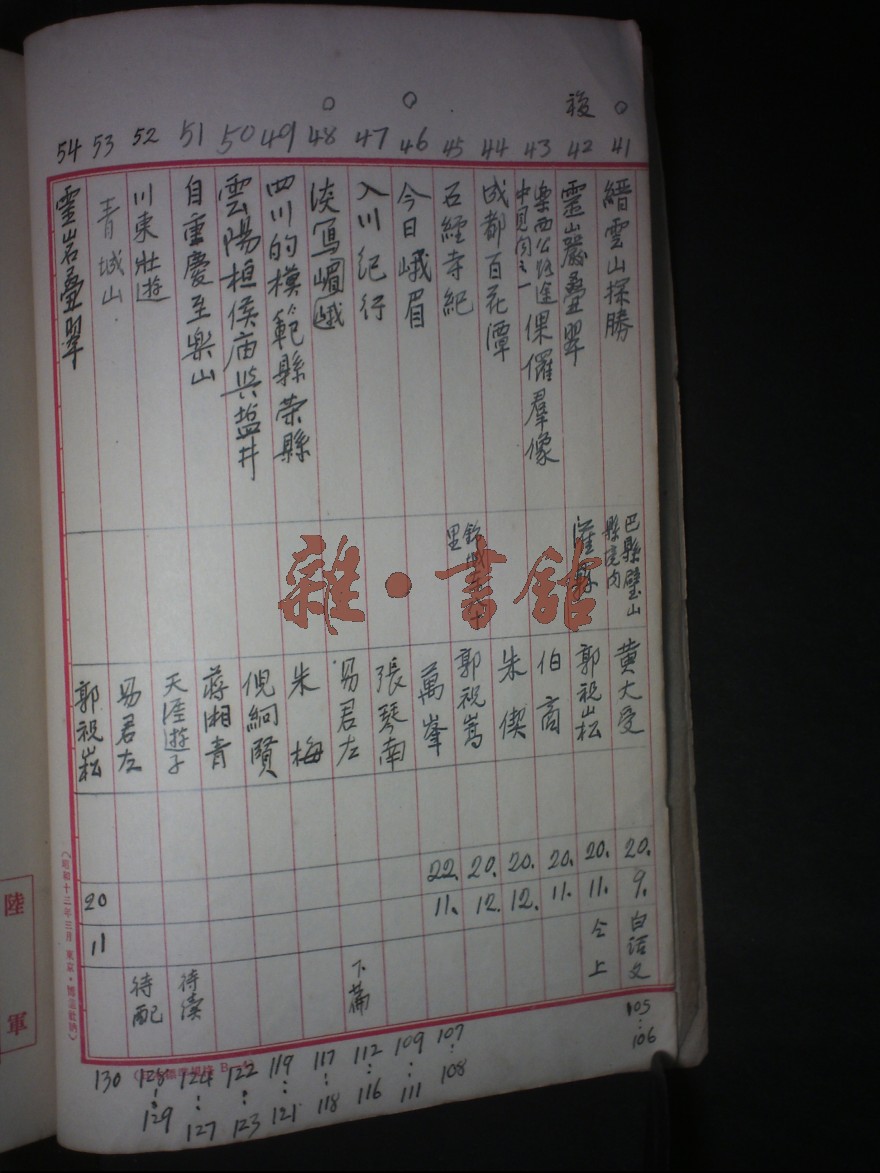 ○ 41 縉雲山探勝 巴縣璧山縣境内 黄大受 20. 9. 白话文 105:106
複 42 靈巖疊翠 灌縣 郭祝崧 20. 11. 仝上
43 樂西公路途中見闻之一 倮儸羣像 伯商 20. 11.
44 成都百花潭 朱偰 20. 12.
45 石經寺紀 郭祝嵩 20. 12. 107:108
○ 46 今日峨眉 萬峯 22. 11. 109:111
47 入川纪行 張琴南 下篇 112:116
○ 48 淡寫嵋峨 易君左 117:118
49 四川的模範縣荣縣 朱梅 119:121
50 雲陽桓侯庙與盐井 倪絅賢 122:123
51 自重慶至樂山 蒋湘青 待湊 124:127
52 川東壯遊 天涯遊子 待配 128:129
53 青城山 易君左
54 靈岩疊翠 郭祝崧 20 11 130
雜·書館
陸軍